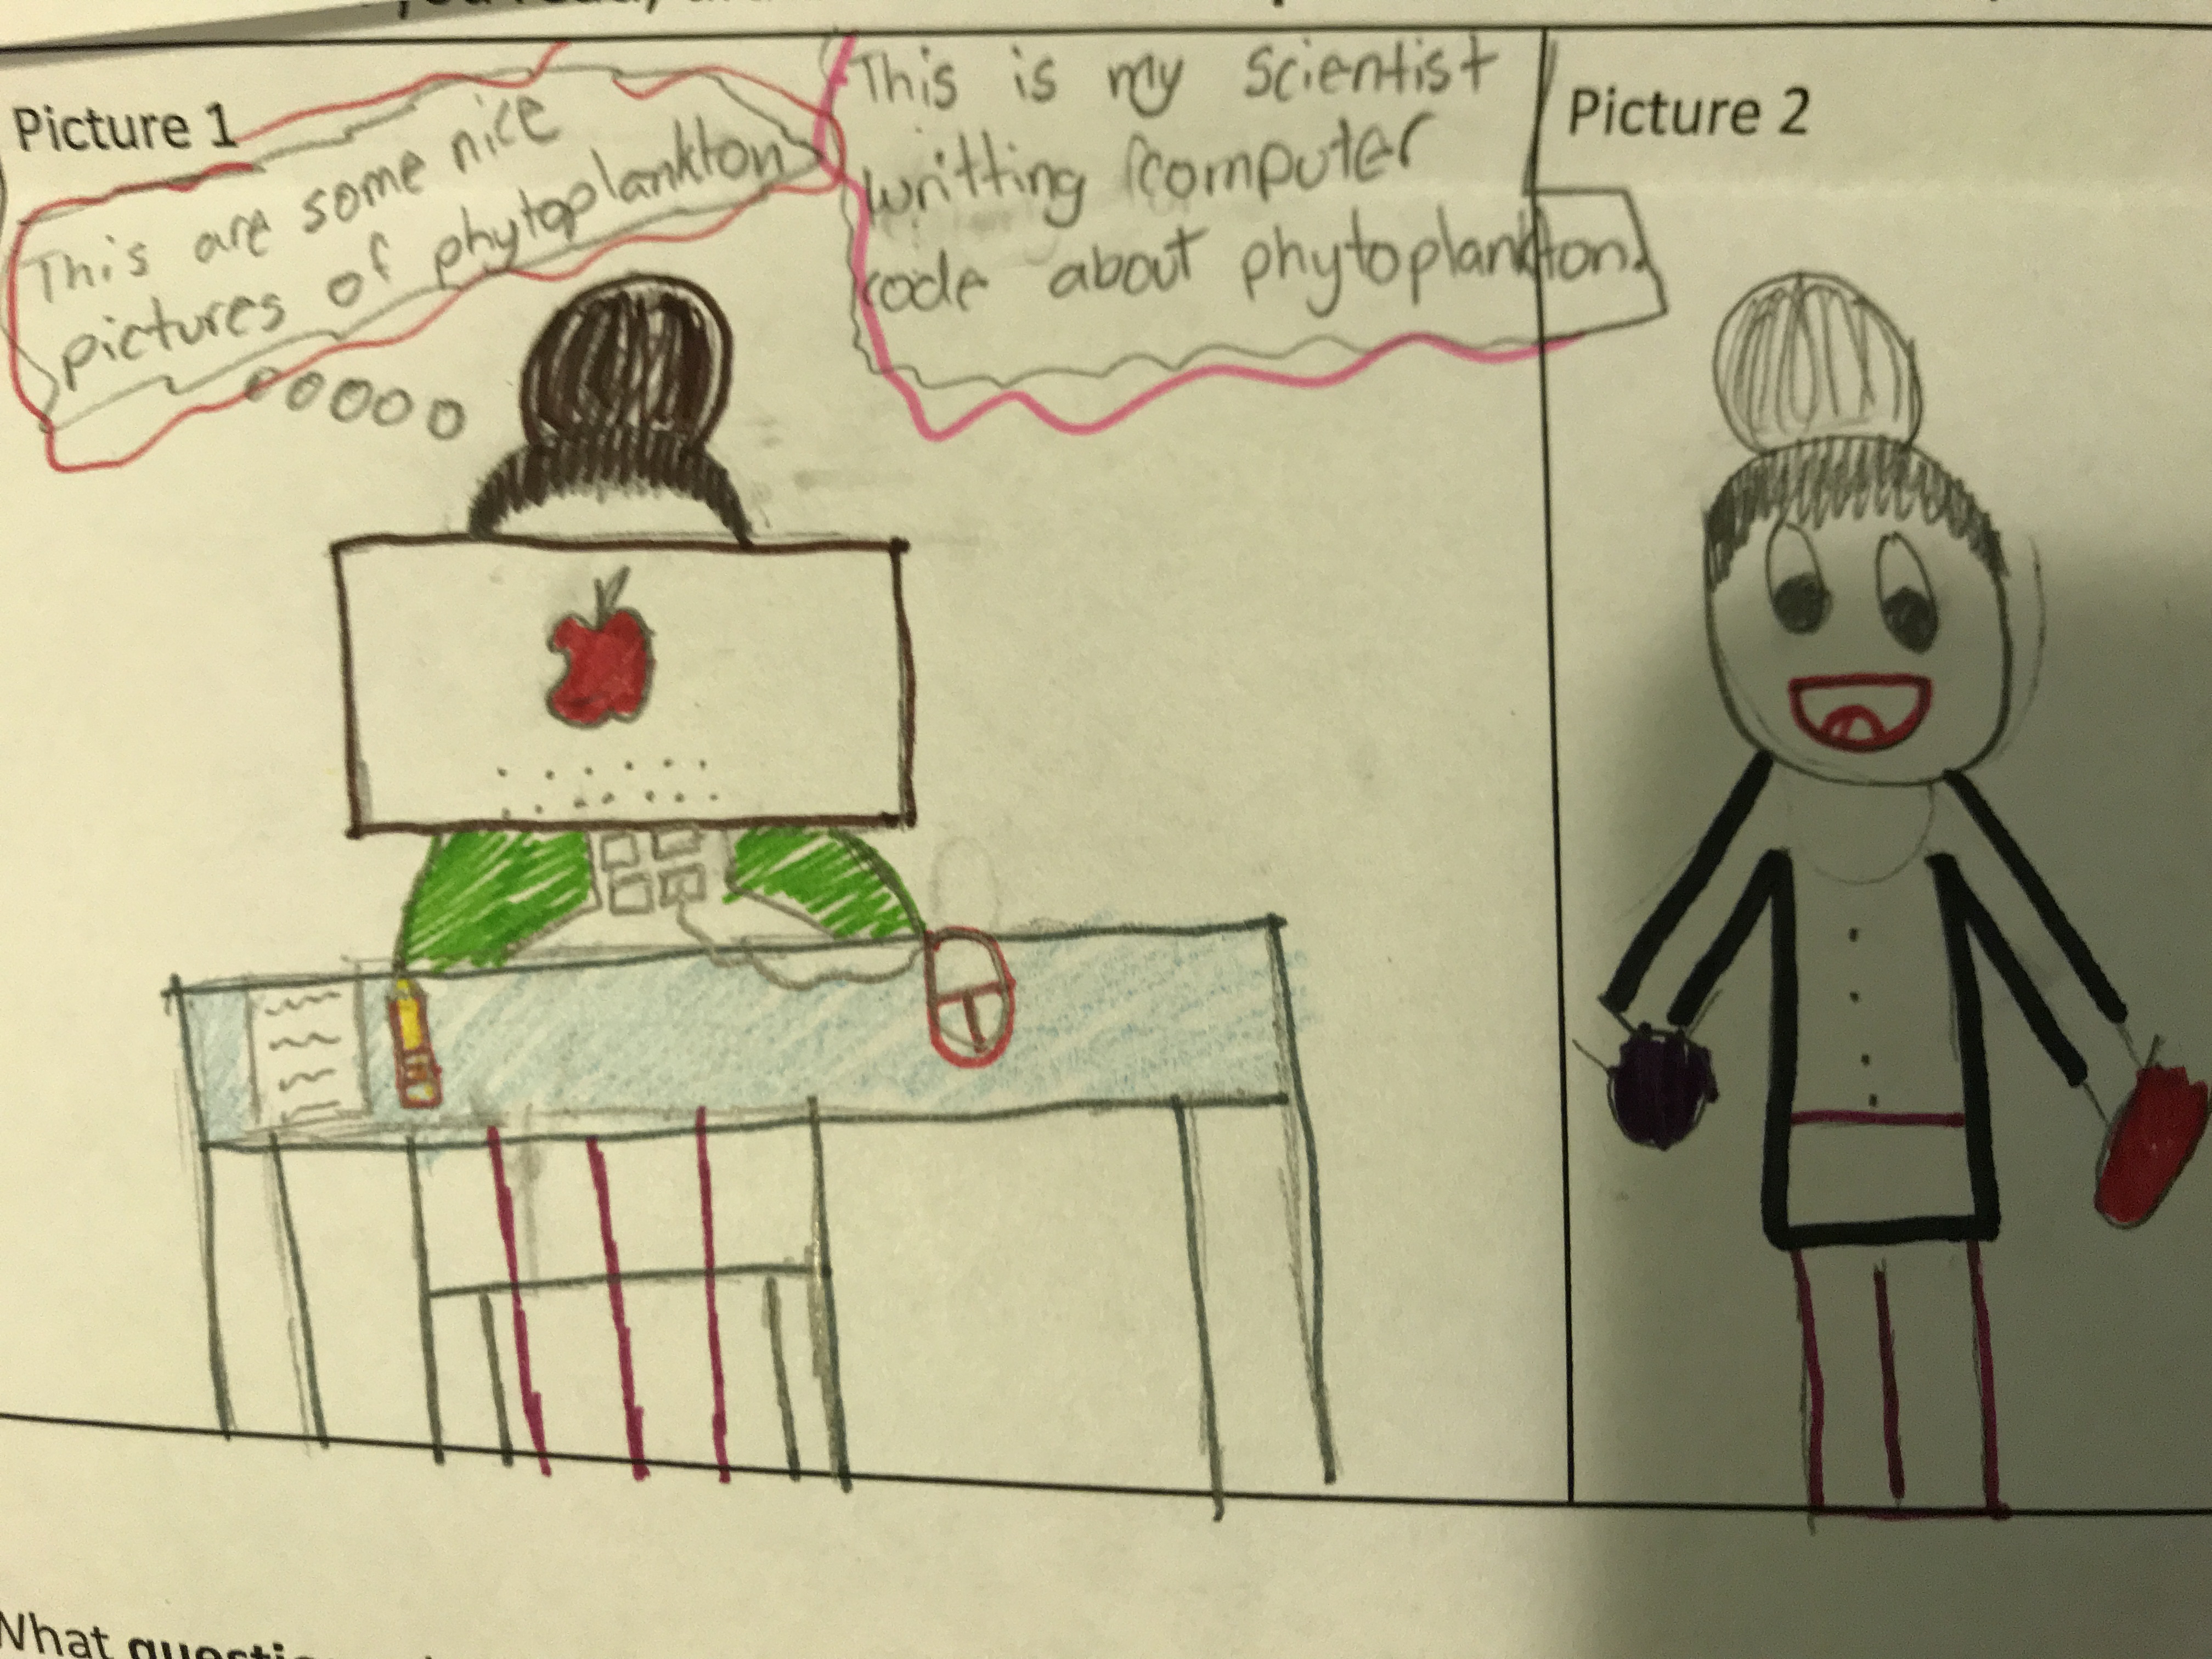 Picture 1
This are some nice
pictures of phytoplankton
This is my scientist
writting computer
code about phytoplankton.
Picture 2
What